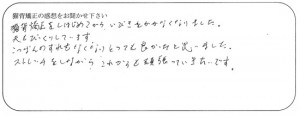 猫背矯正の感想をお聞かせ下さい
猫背矯正をしはじめてからいびきをかかなくなりました。
夫もびっくりしています。
こつばんのずれもなくなりとっても良かったと思いました。
ストレッチをしながらこれからも頑張っていきたいです。